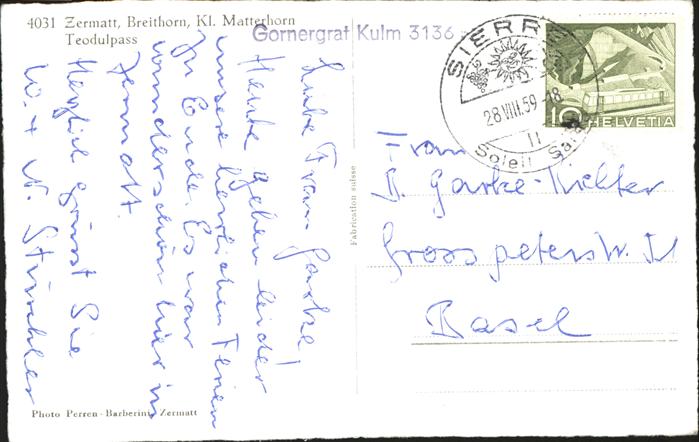 4031 Zermatt, Breithorn, Kl. Matterhorn
Teodulpass
Gornergrat Kulm 3136
SIERRE
28.VIII.59.-18
Soleil
10
HELVETIA
Liebe Frau Garke!
Heute gehen leider
unsere herrlichen Ferien
zu Ende. Es war
wunderschön hier in
Zermatt.
Herzlich grüsst Sie
W. + N.
Fabrication suisse
Frau
Garke-
Basel
Photo Perren-Barberini, Zermatt